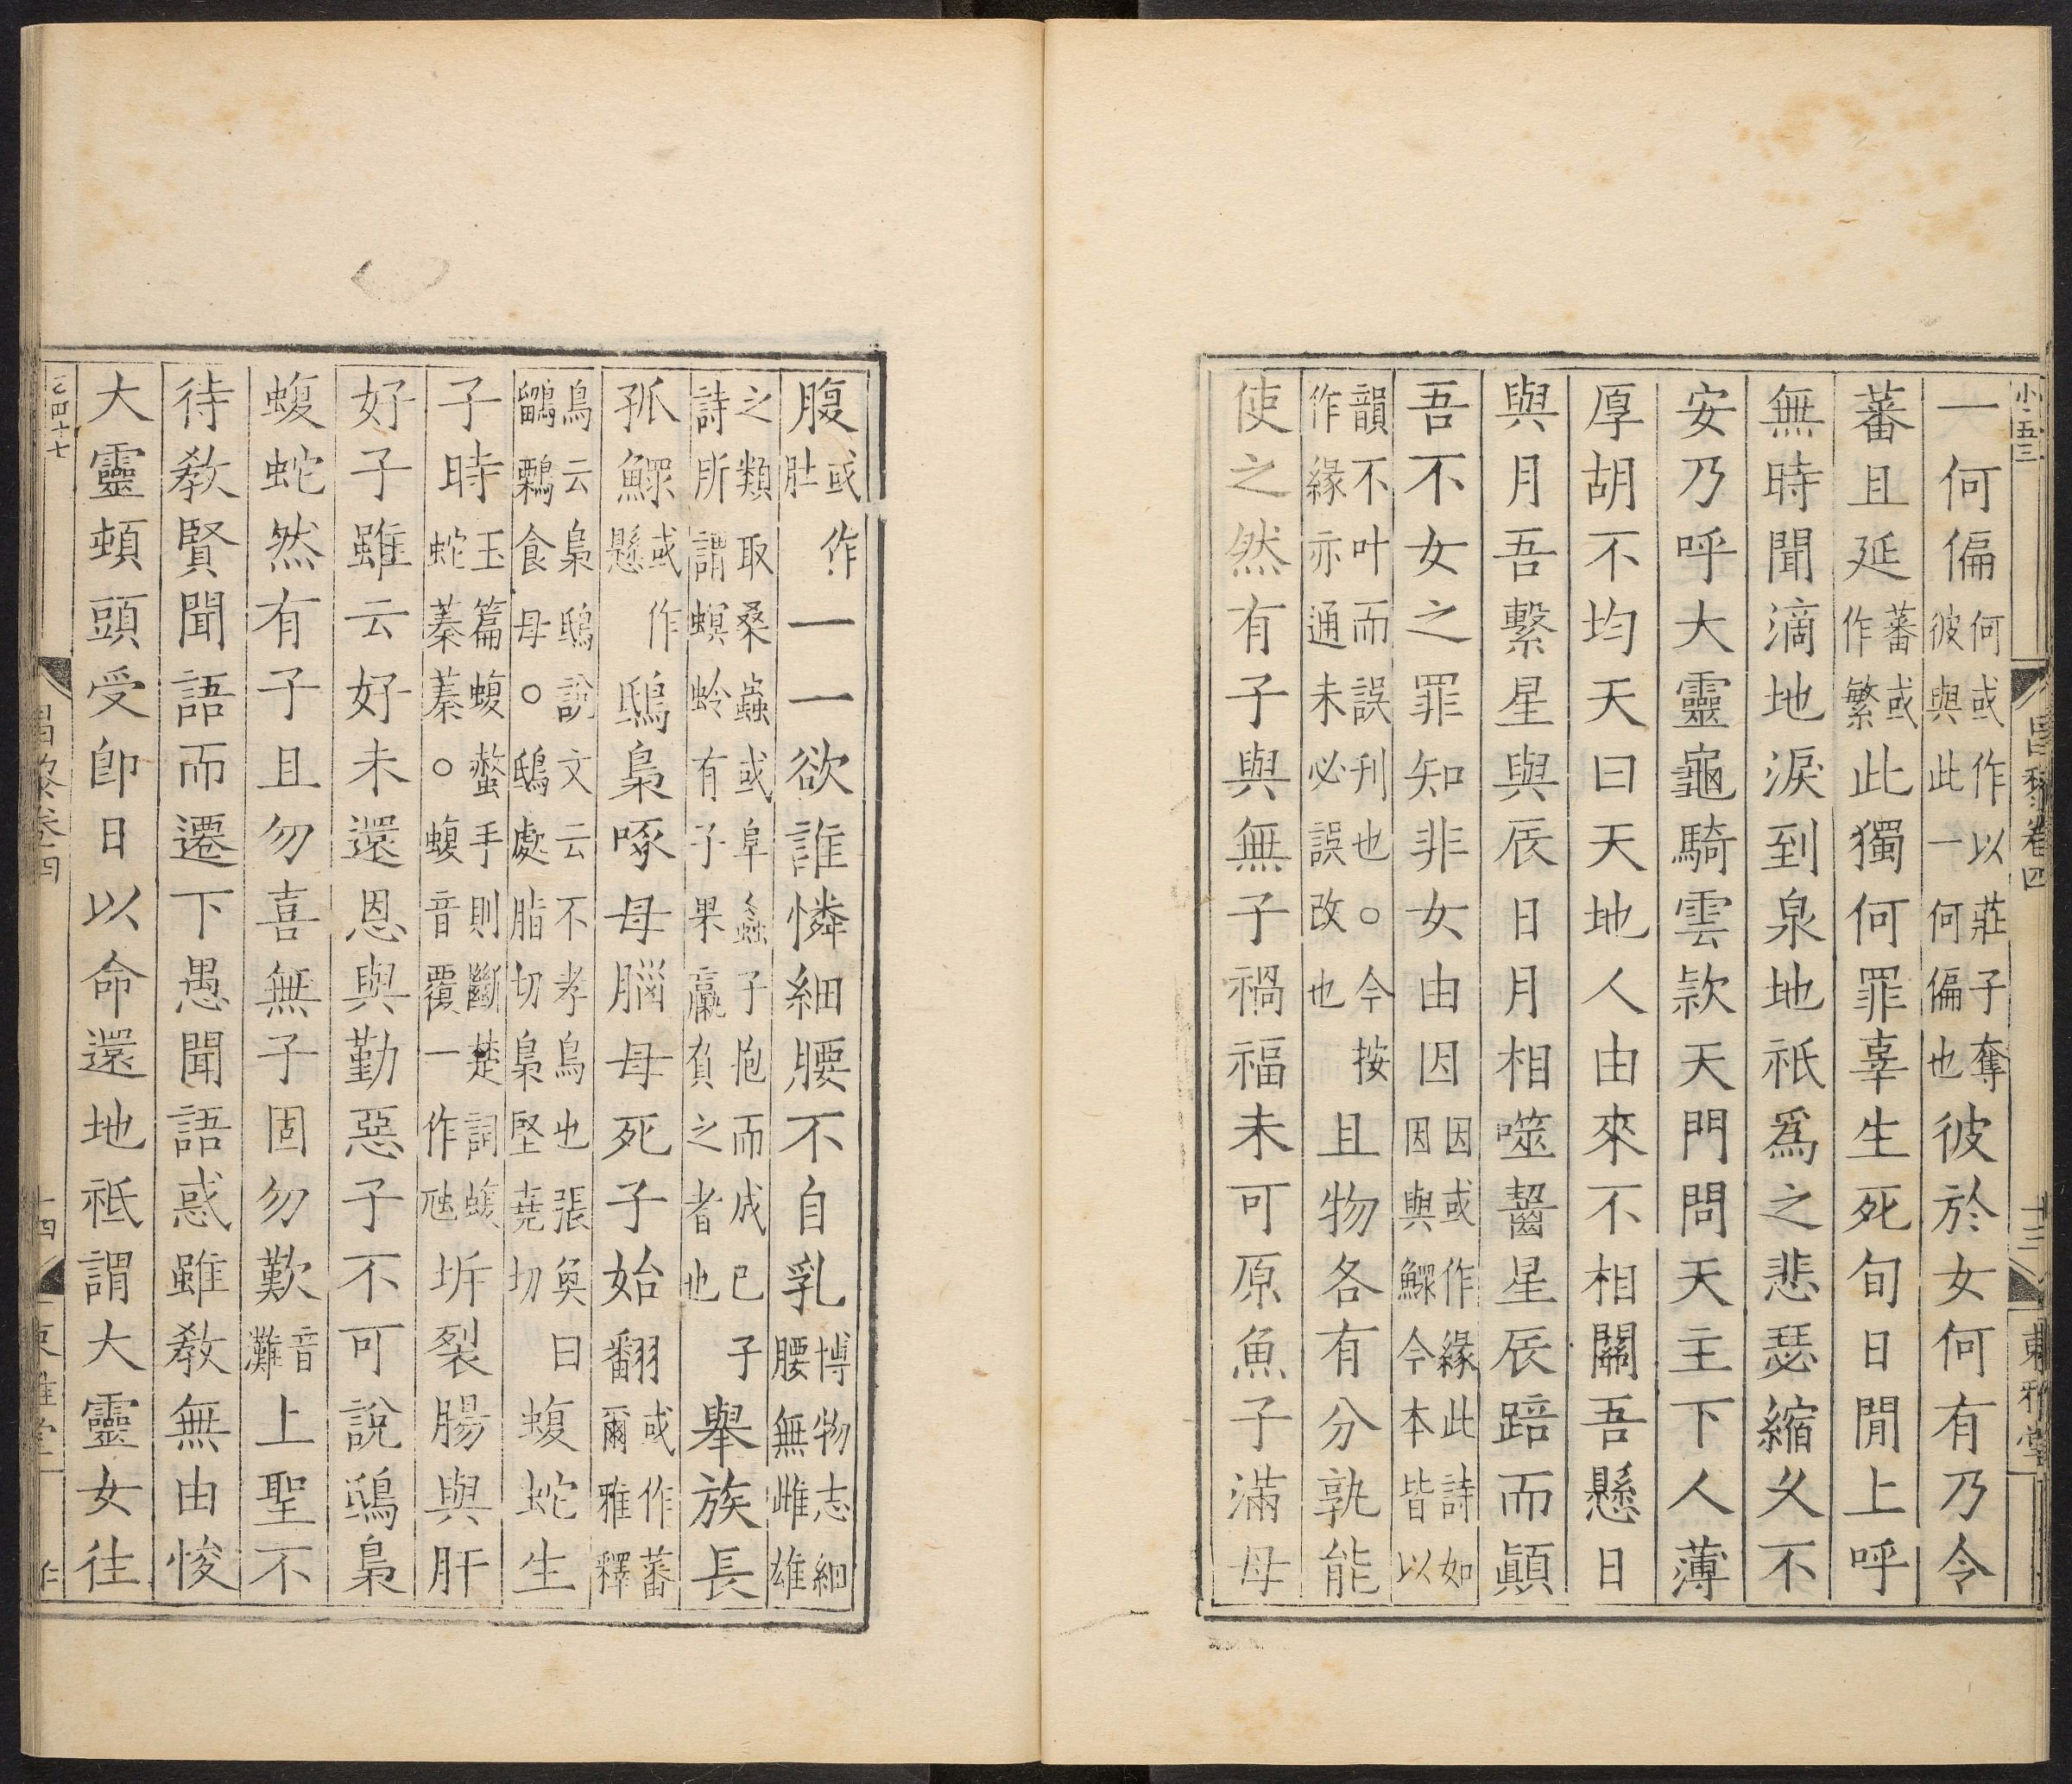 小五三
昌黎卷四
十三
東雅堂
一何偏何或作以莊子奪彼與此一何偏也彼於女何有乃令
蕃且延蕃或作繁此獨何罪辜生死旬日閒上呼
無時聞滴地淚到泉地祇爲之悲瑟縮久不
安乃呼大靈龜騎雲款天門問天主下人薄
厚胡不均天曰天地人由來不相關吾懸日
與月吾繫星與辰日月相噬齧星辰踣而顚
吾不女之罪知非女由因因或作緣此詩如因與鰥今本皆以
韻不叶而誤刊也○今按作緣亦通未必誤改也且物各有分孰能
使之然有子與無子禍福未可原魚子滿母
腹或作肚一一欲誰憐細腰不自乳博物志細腰無雌雄
之類取桑蟲或阜螽子抱而成己子詩所謂螟蛉有子果蠃負之者也舉族長
孤鰥或作懸鴟梟啄母腦母死子始翻或作蕃爾雅釋
鳥云梟鴟說文云不孝鳥也張奐曰鶹鷅食母○鴟處脂切梟堅堯切蝮蛇生
子時玉篇蝮螫手則斷楚詞蝮蛇蓁蓁○蝮音覆一作虺坼裂腸與肝
好子雖云好未還恩與勤惡子不可說鴟梟
蝮蛇然有子且勿喜無子固勿歎音灘上聖不
待教賢聞語而遷下愚聞語惑雖教無由悛
大靈頓頭受卽日以命還地祗謂大靈女往
己四十七
昌黎卷四
十四
東雅堂